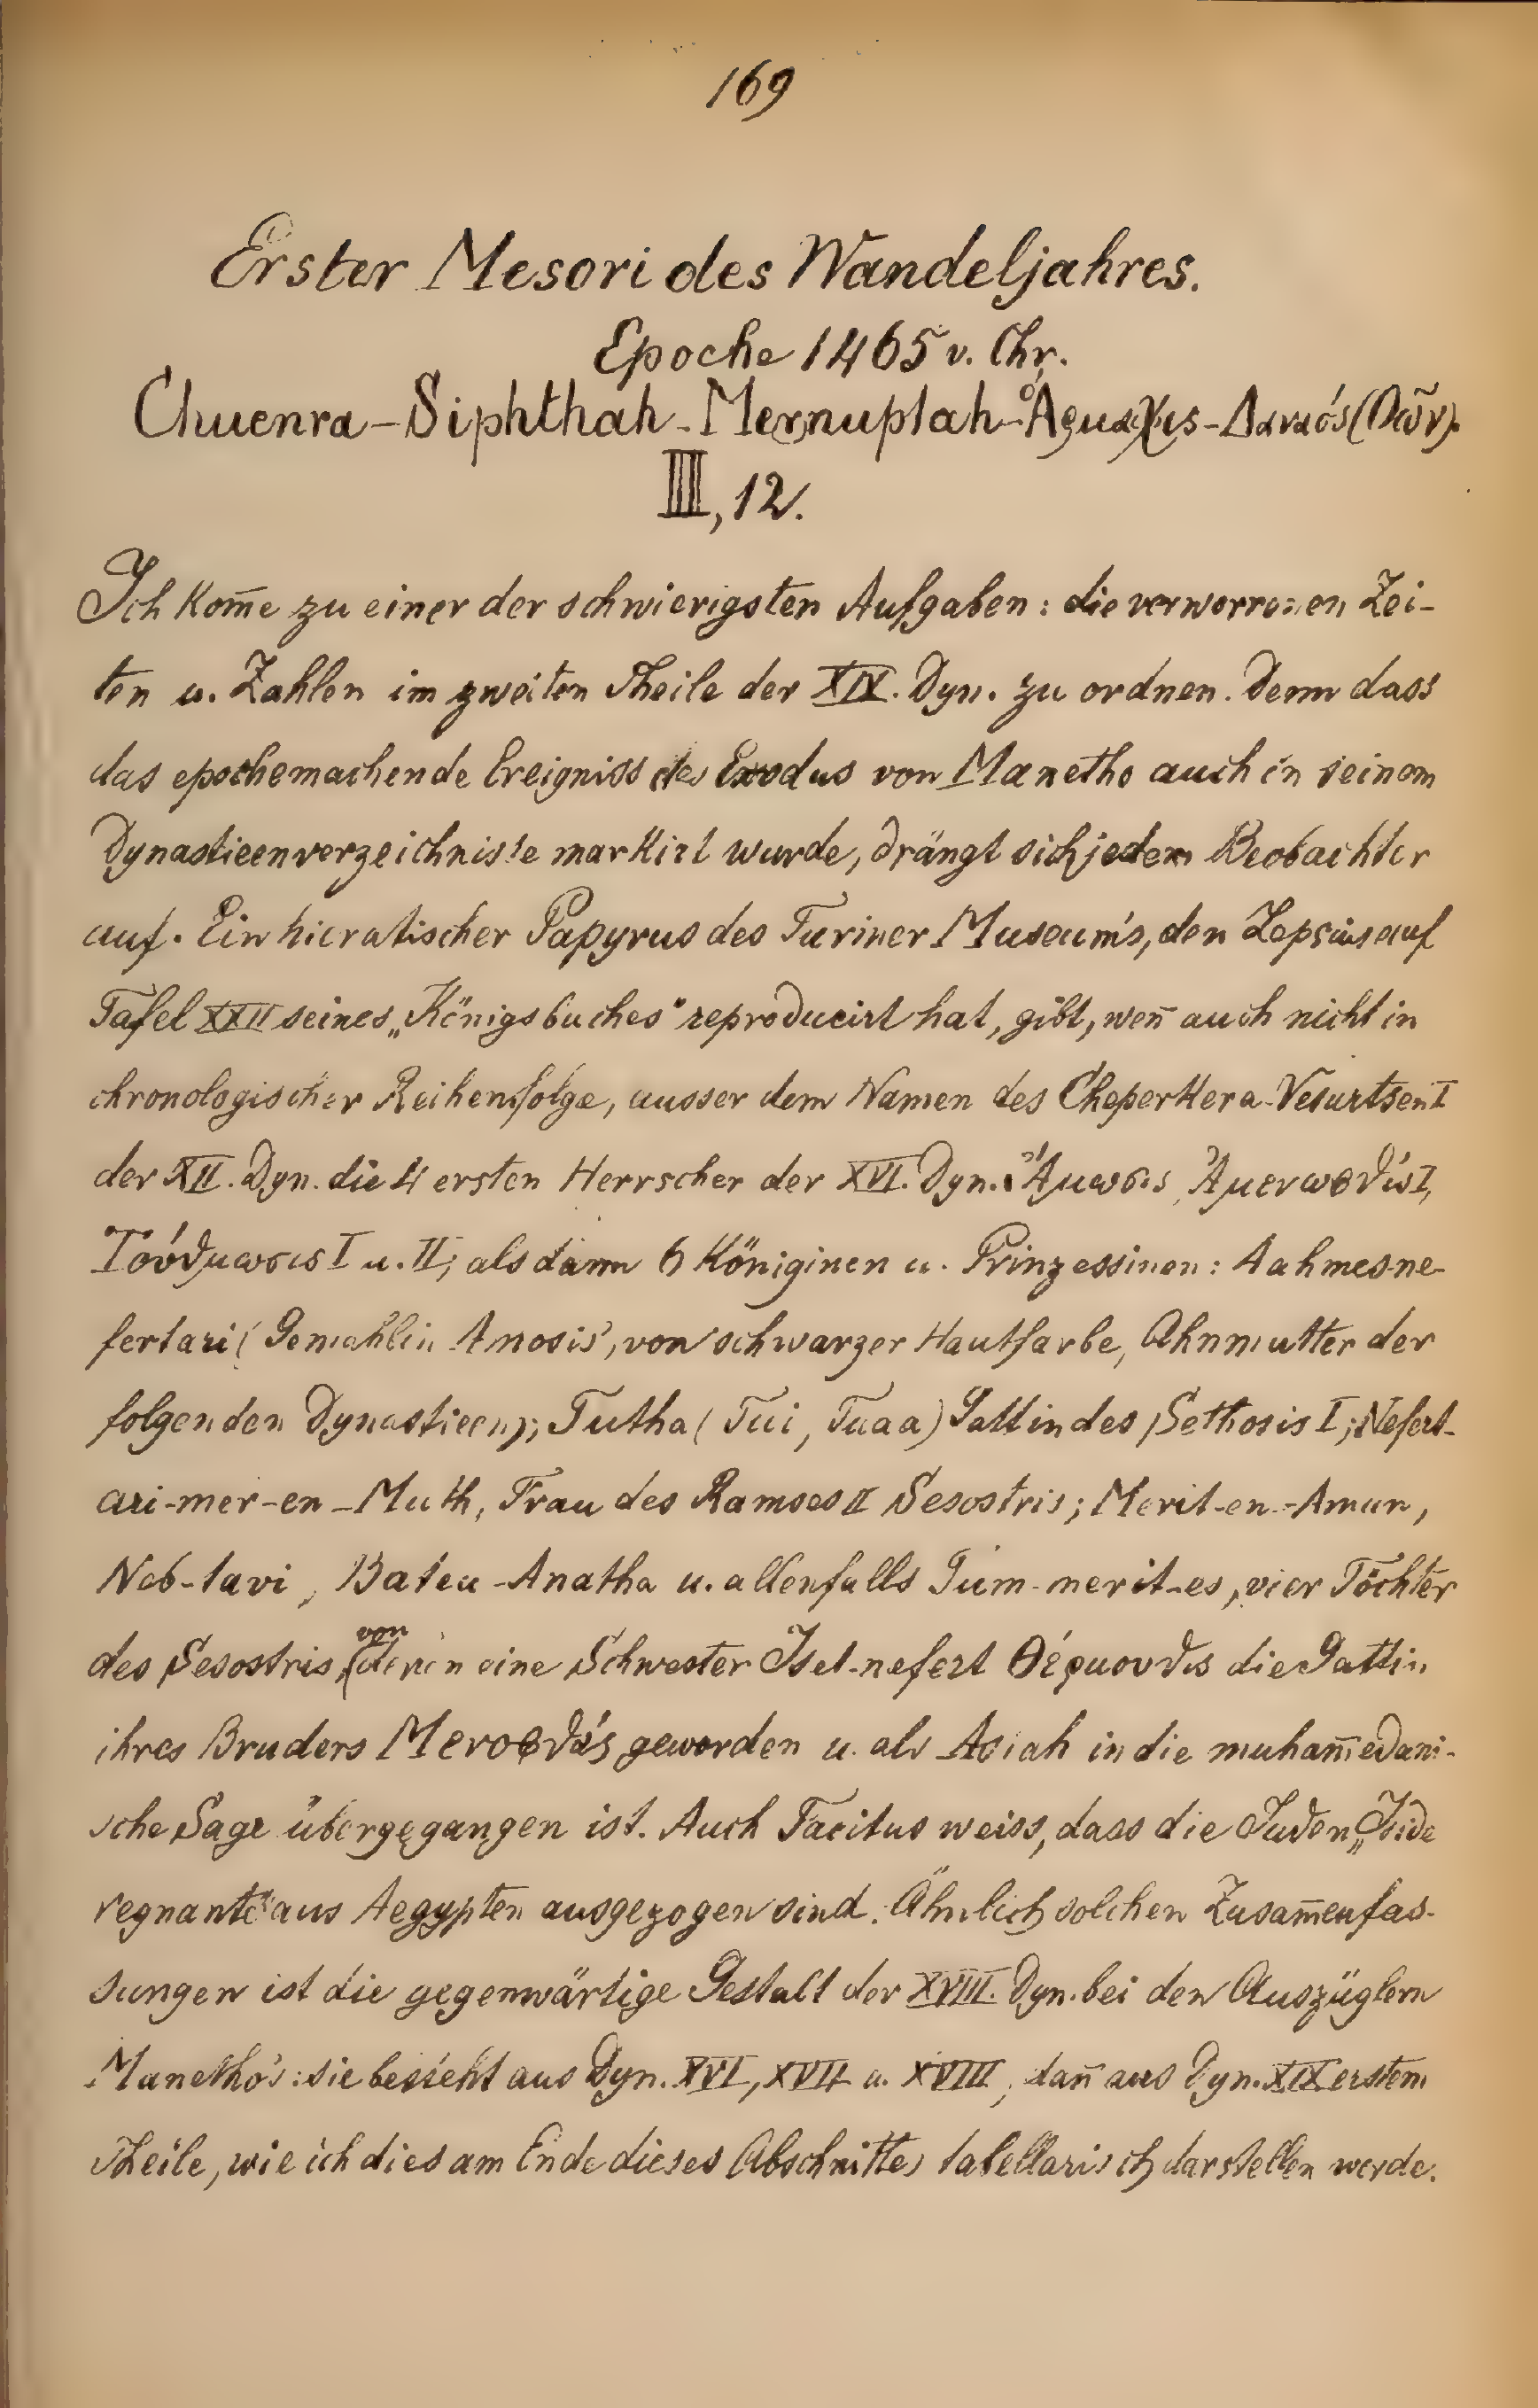 169
Erster Mesori des Wandeljahres.
Epoche 1465 v. Chr.
Chuenra-Siphthah-Mernuptah-Ἅρμαχις-Δαναός (Θῶν).
III, 12.
Ich kom̅e zu einer der schwierigsten Aufgaben: die verworrenen Zei-
ten u. Zahlen im zweiten Theile der XIX. Dyn. zu ordnen. Denn dass
das epochemachende Ereigniss des Exodus von Manetho auch in seinem
Dynastieenverzeichnisse markirt wurde, drängt sich jedem Beobachter
auf. Ein hieratischer Papyrus des Turiner Museum's, den Lepsius auf
Tafel XXII seines „Königsbuches" reproducirt hat, gibt, wen̅ auch nicht in
chronologischer Reihenfolge, ausser dem Namen des Cheperkera-Vesurtsen I
der XII. Dyn. die 4 ersten Herrscher der XVI. Dyn.: Ἄμωσις, Ἀμενωφθίς I,
Τούθμωσις I u. II; alsdann 6 Königinen u. Prinzessinen: Aahmes-ne-
fertari (Gemahlin Amosis', von schwarzer Hautfarbe, Ahnmutter der
folgenden Dynastieen); Tutha (Tui, Tuaa) Gattin des Sethosis I; Nefert-
ari-mer-en-Muth, Frau des Ramses II Sesostris; Merit-en-Amun,
Neb-tavi, Bateu-Anatha u. allenfalls Tum-merit-es, vier Töchter
des Sesostris, von denen eine Schwester Iset-nefert Θέρμουθις die Gattin
ihres Bruders Μενοφθᾶς geworden u. als Asiah in die muham̅edani-
sche Sage übergegangen ist. Auch Tacitus weiss, dass die Juden „Iside
regnante" aus Aegypten ausgezogen sind. Ähnlich solchen Zusam̅enfas-
sungen ist die gegenwärtige Gestalt der XVIII. Dyn. bei den Auszüglern
Manetho's: sie besteht aus Dyn. XVI, XVII u. XVIII, dan̅ aus Dyn. XIX ersten
Theile, wie ich dies am Ende dieses Abschnittes tabellarisch darstellen werde.